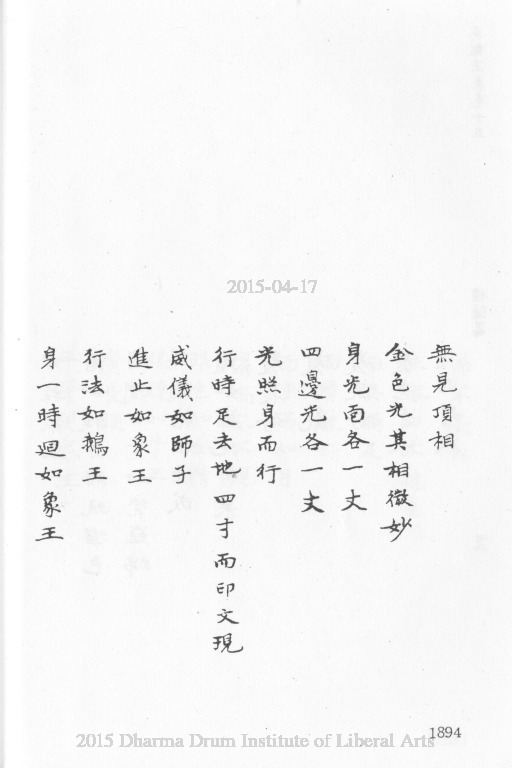 2015-04-17
無見頂相
金色光其相微妙
身光面各一丈
四邊光各一丈
光照身而行
行時足去地四寸而印文現
威儀如師子
進止如象王
行法如鵝王
身一時迴如象王
1894
2015 Dharma Drum Institute of Liberal Arts